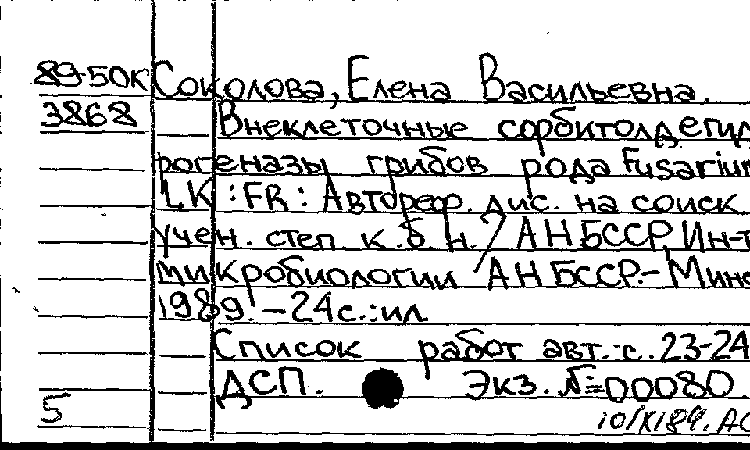 89-50К Соколова, Елена Васильевна.
3868 Внеклеточные сорбитолдегид
рогеназы грибов рода Fusarium
LK : FR : Автореф. дис. на соиск.
учен. степ к. б н. / АН БССР, Ин-т
микробиологии АН БССР. - Минс
1989. - 24 с.: ил
Список работ авт.: с. 23-24
ДСП. Экз. №=00080
5 10/XI89.